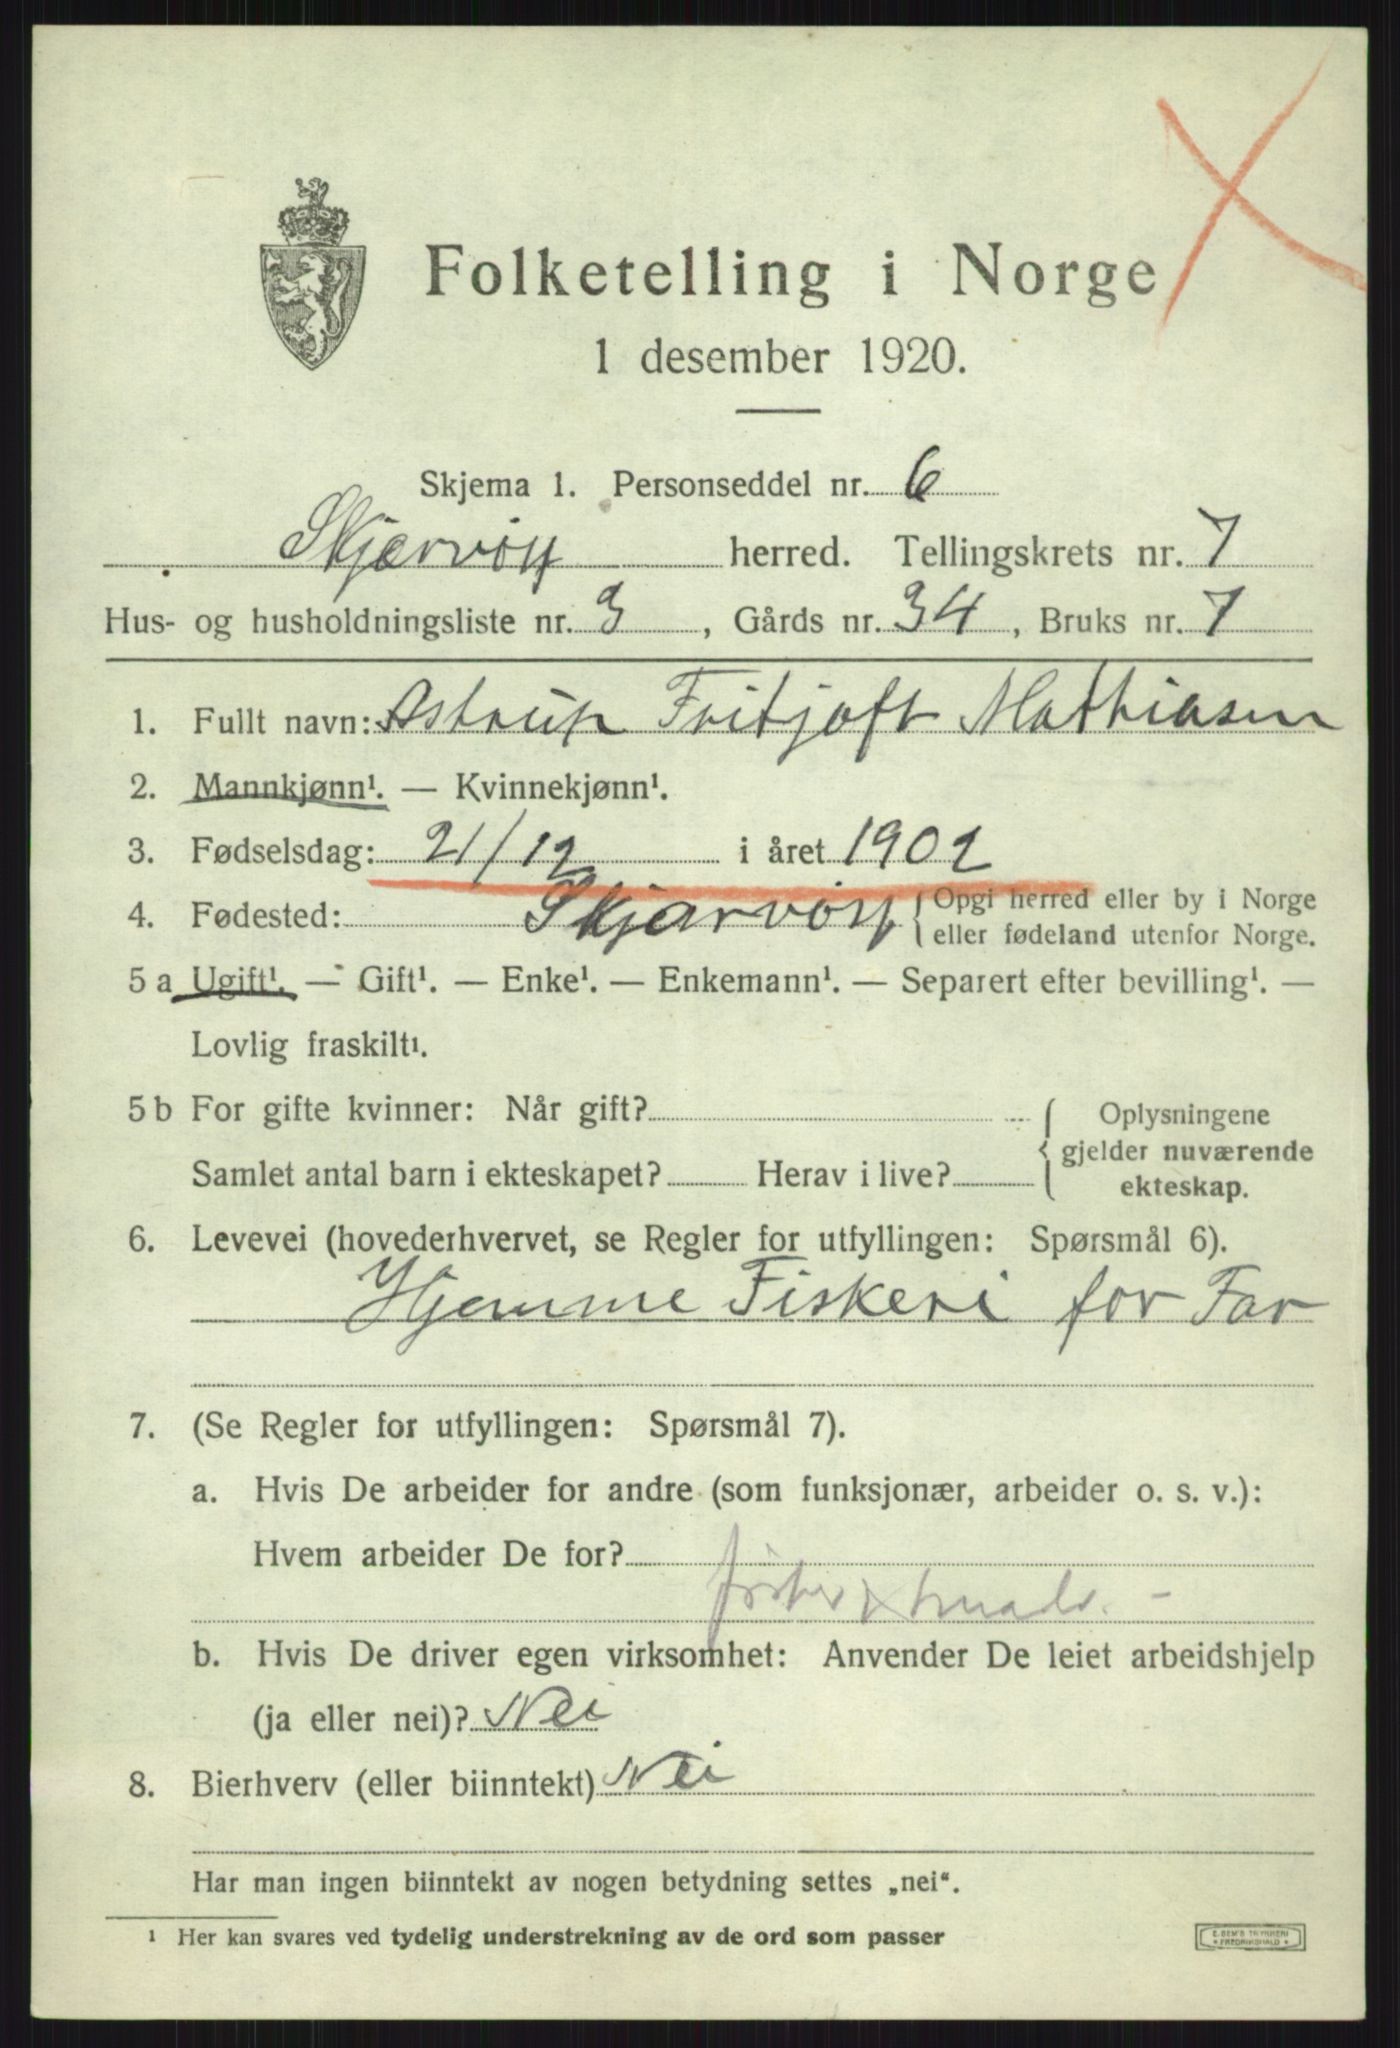 Folketelling i Norge
1 desember 1920.
Skjema 1. Personseddel nr. 6
Skjærvöy herred. Tellingskrets nr. 7
Hus- og husholdningsliste nr. 3, Gårds nr. 34, Bruks nr. 7
1. Fullt navn: Astrup Fritjoft Mathiasen
2. Mannkjønn¹. — Kvinnekjønn¹.
3. Fødselsdag: 21/12 i året 1902
4. Fødested: Skjærvöy {Opgi herred eller by i Norge
eller fødeland utenfor Norge.
5 a Ugift¹. — Gift¹. — Enke¹. — Enkemann¹. — Separert efter bevilling¹. —
Lovlig fraskilt¹.
5 b For gifte kvinner: Når gift? { Oplysningene
gjelder nuværende
Samlet antal barn i ekteskapet? Herav i live?
ekteskap.
6. Levevei (hovederhvervet, se Regler for utfyllingen: Spørsmål 6).
Hjemme Fiskeri for Far
7. (Se Regler for utfyllingen: Spørsmål 7).
a. Hvis De arbeider for andre (som funksjonær, arbeider o. s. v.):
Hvem arbeider De for?
b. Hvis De driver egen virksomhet: Anvender De leiet arbeidshjelp
(ja eller nei)? Nei
8. Bierhverv (eller biinntekt) Nei
Har man ingen biinntekt av nogen betydning settes „nei“.
¹ Her kan svares ved tydelig understrekning av de ord som passer
E. SEM'S TRYKKERI
FREDRIKSHALD